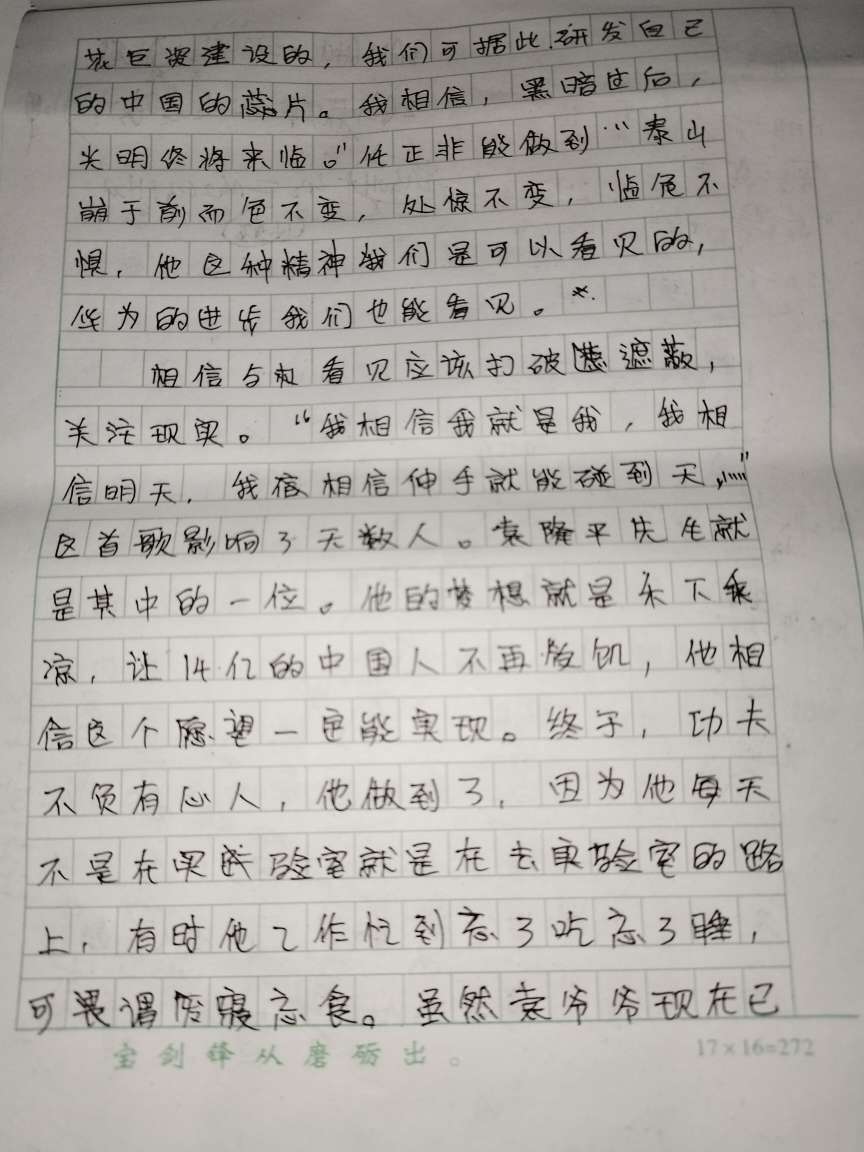 巨资建设的，我们可据此研发自己
的中国的蕊片。我相信，黑暗过后，
光明终将来临。”任正非能做到“泰山
崩于前而色不变，处惊不变，临危不
惧，他这种精神我们是可以看见的，
华为的进步我们也能看见。
相信与看见应该打破遮蔽，
关注现实。“我相信我就是我，我相
信明天，我相信伸手就能碰到天……”
这首歌影响了天数人。袁隆平先生就
是其中的一位。他的梦想就是禾下乘
凉，让14亿的中国人不再饥，他相
信这个愿望一定能实现。终于，功夫
不负有心人，他做到了，因为他每天
不是在实验室就是在去实验室的路
上，有时他工作忙到忘了吃忘了睡，
可谓废寝忘食。虽然袁爷爷现在已
宝剑锋从磨砺出。
17×16=272